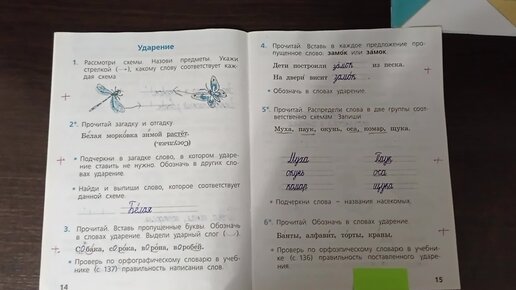 Ударение
1. Рассмотри схемы. Назови предметы. Укажи
стрелкой (→), какому слову соответствует каж-
дая схема.
2*. Прочитай загадку и отгадку.
Белая морковка зимой растёт.
(Сосулька.)
• Подчеркни в загадке слово, в котором ударе-
ние ставить не нужно. Обозначь в других сло-
вах ударение.
• Найди и выпиши слово, которое соответствует
данной схеме.
Белая
3. Прочитай. Вставь пропущенные буквы. Обозначь
в словах ударение. Выдели ударный слог
Собака, сорока, ворона, воробей.
• Проверь по орфографическому словарю в учеб-
нике (с. 137) правильность написания слов.
14
4. Прочитай. Вставь в каждое предложение про-
пущенное слово: замок или замок.
Дети построили замок из песка.
На двери висит замок.
• Обозначь в словах ударение.
5*. Прочитай. Распредели слова в две группы соот-
ветственно схемам. Запиши.
Муха, паук, окунь, оса, комар, щука.
Муха Паук
окунь оса
комар щука
• Подчеркни слова – названия насекомых.
6*. Прочитай. Обозначь в словах ударение.
Банты, алфавит, торты, краны.
• Проверь по орфоэпическому словарю в учебни-
ке (с. 136) правильность поставленного ударе-
ния.
15